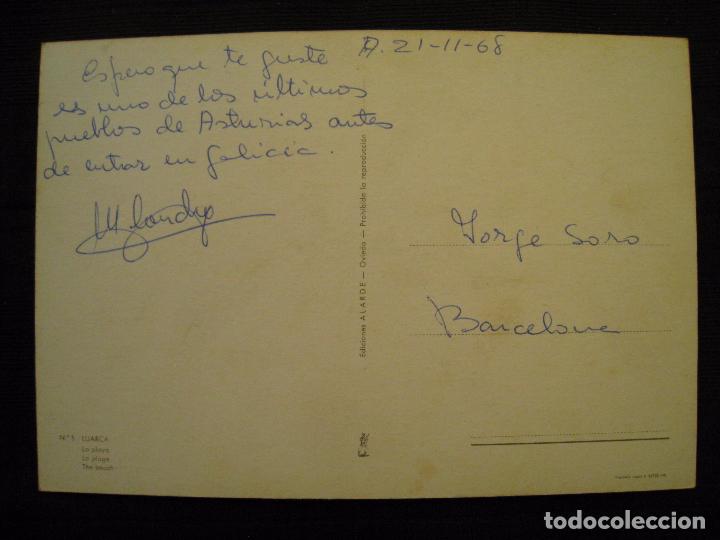 21-11-68
Espero que te guste
es uno de los últimos
pueblos de Asturias antes
de entrar en Galicia.
Jorge Soro
Barcelona
Ediciones ALARDE — Oviedo — Prohibida la reproducción
N.º 5 LUARCA
La playa
La plage
The beach
todocoleccion